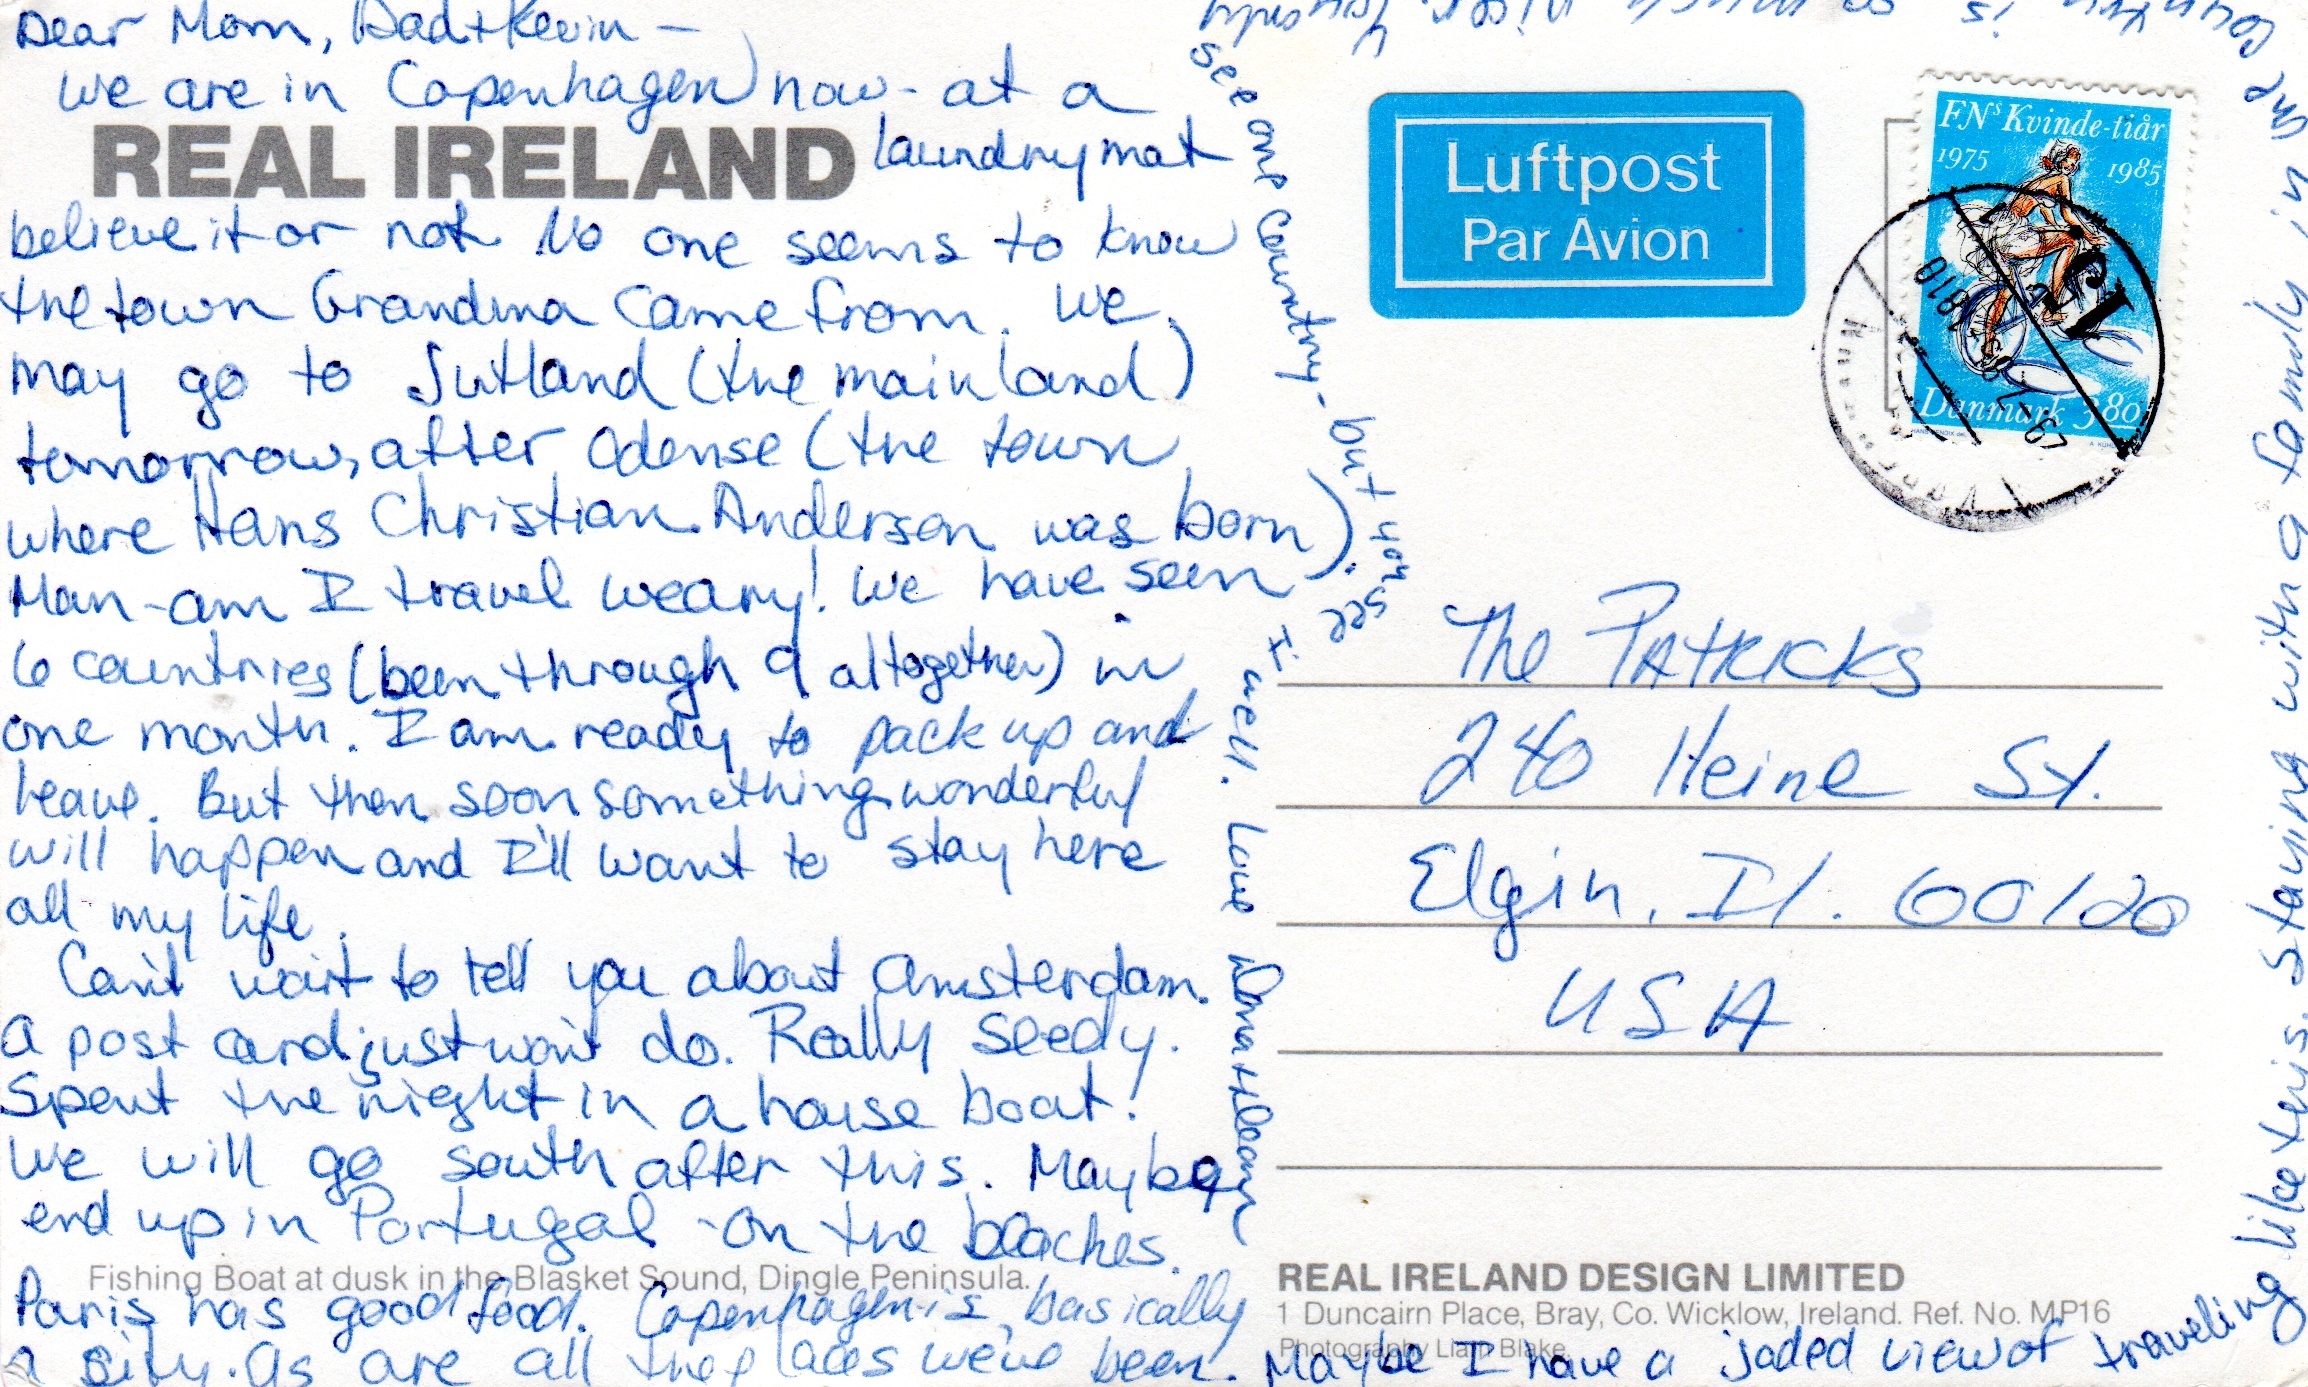 Dear Mom, Dad + Kevin -
We are in Copenhagen now - at a
REAL IRELAND
laundrymat
believe it or not. No one seems to know
the town Grandma came from. We
may go to Jutland (the mainland)
tomorrow, after Odense (the town
where Hans Christian Anderson was born).
Man - am I travel weary! We have seen
6 countries (been through 9 altogether) in
one month. I am ready to pack up and
leave. But then soon something wonderful
will happen and I'll want to stay here
all my life.
Can't wait to tell you about Amsterdam.
A post card just won't do. Really seedy.
Spent the night in a house boat!
We will go south after this. Maybe
end up in Portugal - on the beaches.
Fishing Boat at dusk in the Blasket Sound, Dingle Peninsula.
Paris has good food. Copenhagen is basically
a city. As are all the places we've been.
Maybe I have a jaded view of traveling
like this. Staying with a family in one
country is so much nicer. You only
see one country - but you see
it well. Love
Luftpost
Par Avion
FNs Kvinde-tiår
1975 1985
Danmark 380
The Patricks
240 Heine St.
Elgin, Il. 60120
USA
REAL IRELAND DESIGN LIMITED
1 Duncairn Place, Bray, Co. Wicklow, Ireland. Ref. No. MP16
Photography Liam Blake